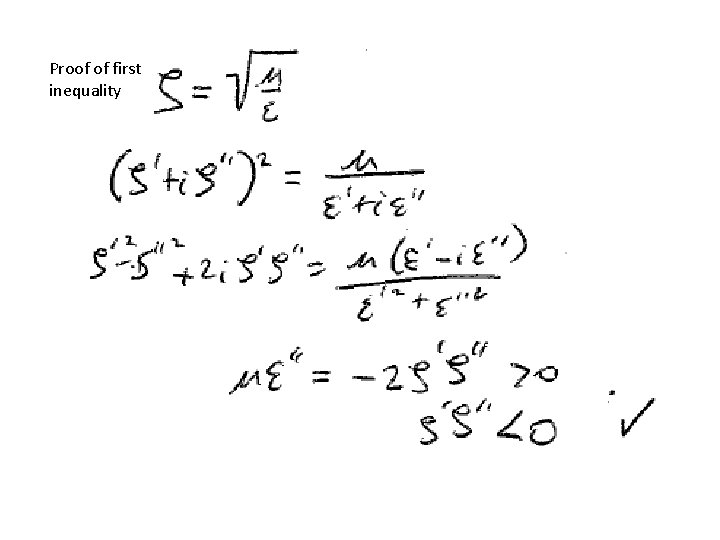 Proof of first
inequality
ζ = √(μ/ε)
(ζ' + iζ'')² = μ/(ε' + iε'')
ζ'² - ζ''² + 2iζ'ζ'' = μ(ε' - iε'')/(ε'² + ε''²)
με'' = -2ζ'ζ'' >0
ζ'ζ'' <0 ✓